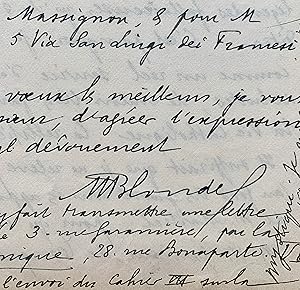 Massignon, & pour M
5 Via San Luigi dei Francesi
voeux les meilleurs, je vous
d'agréer l'expression
dévouement
MBlondel
fait transmettre une lettre
3. rue Garancière, par la
nique, 28 rue Bonaparte.
l'envoi des Cahier III sur la